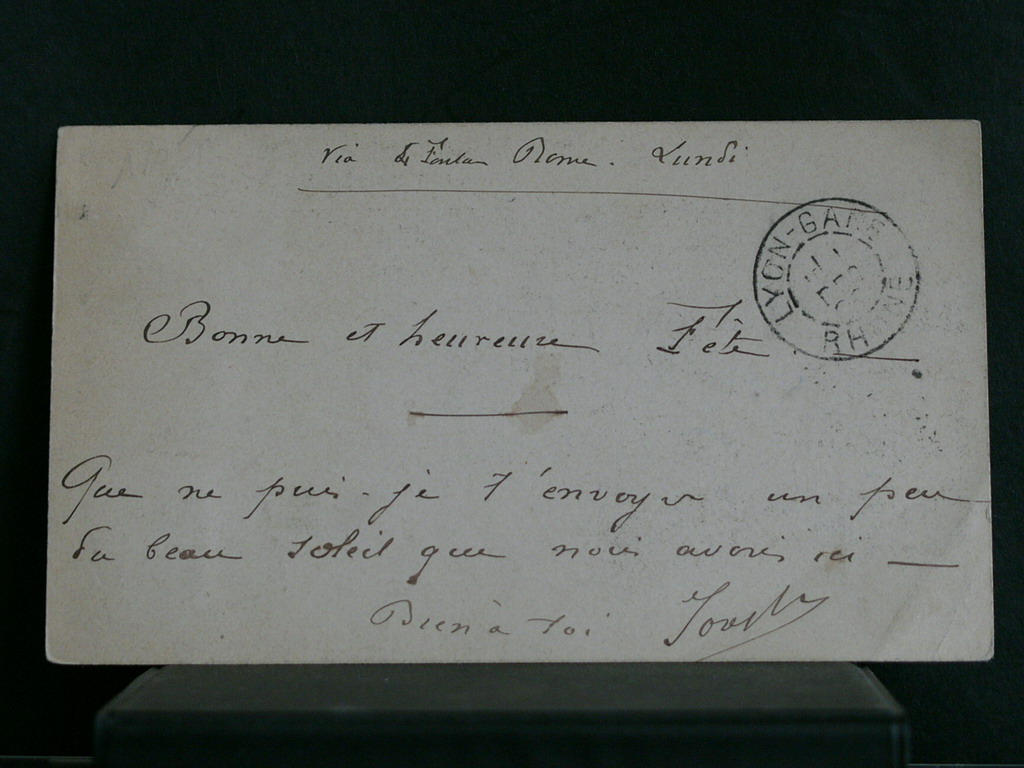 Via Rome. Lundi
LYON-GARE
RHONE
Bonne et heureuse Fête
Que ne puis-je t'envoyer un peu
du beau soleil que nous avons ici
Bien à toi